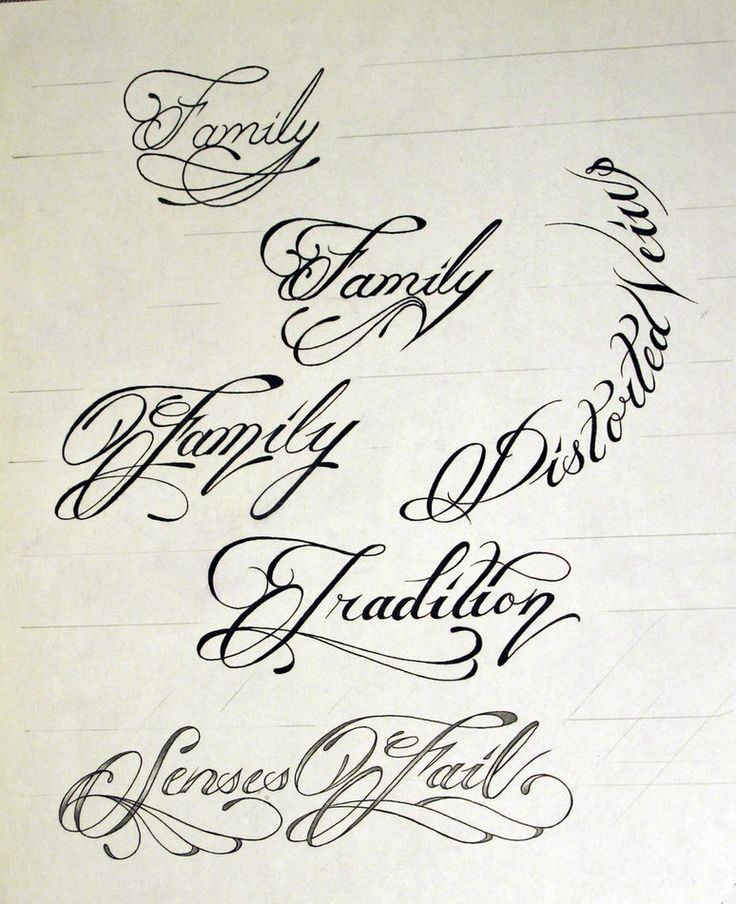 Family
Family
Family
Distorted Veiw
Tradition
Senses Fail